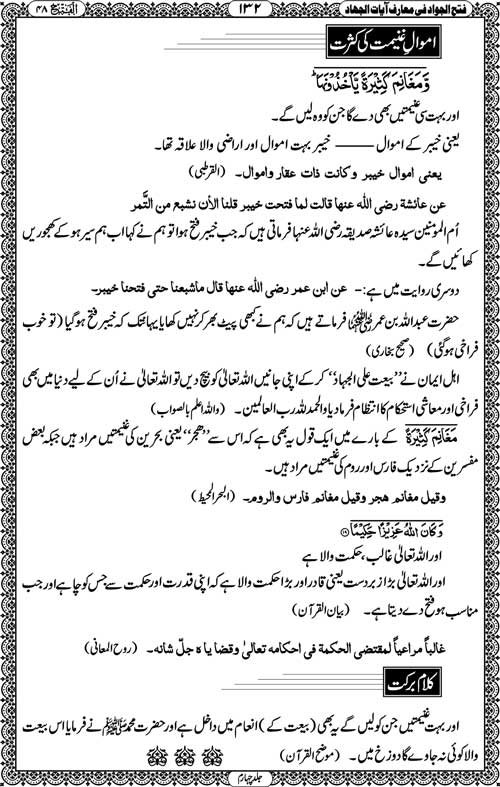 فتح الجواد فی معارف آیات الجہاد
۱۳۲
الفتح ۴۸
اموالِ غنیمت کی کثرت
وَّمَغَانِمَ كَثِيْرَةً يَّاْخُذُوْنَهَا ؕ
اور بہت سی غنیمتیں بھی دے گا جن کو وہ لیں گے۔
یعنی خیبر کے اموال —— خیبر بہت اموال اور اراضی والا علاقہ تھا۔
یعنی اموال خیبر وکانت ذات عقار واموال۔ (القرطبی)
عن عائشة رضی اللّٰہ عنها قالت لما فتحت خیبر قلنا الأن نشبع من التَّمر
اُم المؤمنین سیدہ عائشہ صدیقہ رضی اللہ عنہا فرماتی ہیں کہ جب خیبر فتح ہوا تو ہم نے کہا اب ہم سیر ہو کے کھجوریں
کھائیں گے۔
دوسری روایت میں ہے:- عن ابن عمر رضی اللّٰہ عنها قال ماشبعنا حتی فتحنا خیبر۔
حضرت عبداللہ بن عمر ﷠ فرماتے ہیں کہ ہم نے کبھی پیٹ بھر کر نہیں کھایا یہانتک کہ خیبر فتح ہوگیا (تو خوب
فراخی ہوگئی) (صحیح بخاری)
اہل ایمان نے ’’بیعت علی الجہاد‘‘ کر کے اپنی جانیں اللہ تعالیٰ کو بیچ دیں تو اللہ تعالیٰ نے اُن کے لیے دنیا میں بھی
فراخی اور معاشی استحکام کا انتظام فرمادیا والحمدللہ رب العالمین۔ (واللہ اعلم بالصواب)
مَغَانِمَ كَثِيْرَةً کے بارے میں ایک قول یہ بھی ہے کہ اس سے ’’ھجر‘‘ یعنی بحرین کی غنیمتیں مراد ہیں جبکہ بعض
مفسرین کے نزدیک فارس اور روم کی غنیمتیں مراد ہیں۔
وقیل مغانم هجر وقیل مغانم فارس والروم۔ (البحر المحیط)
وَكَانَ اللّٰهُ عَزِيْزًا حَكِيْمًا ﴿۱۹﴾
اور اللہ تعالیٰ غالب، حکمت والا ہے
اور اللہ تعالیٰ بڑا زبردست یعنی قادر اور بڑا حکمت والا ہے کہ اپنی قدرت اور حکمت سے جس کو چاہے اور جب
مناسب ہو فتح دے دیتا ہے۔ (بیان القرآن)
غالباً مراعیاً لمقتضی الحکمة فی احکامه تعالیٰ وقضا یا ہ جلّ شانه۔ (روح المعانی)
کلام برکت
اور بہت غنیمتیں جن کو لیں گے یہ بھی (بیعت کے) انعام میں داخل ہے اور حضرت محمد ﷺ نے فرمایا اس بیعت
والا کوئی نہ جاوے گا دوزخ میں۔ (موضح القرآن)
جلد چہارم